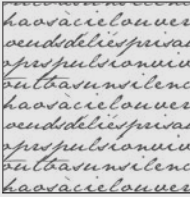 haosàcielouver
vendsdeliéesprisa
oprspulsionviv
outbasunsilenc
haosàcielouver
vendsdeliéesprisa
oprspulsionviv
outbasunsilenc
haosàcielouver